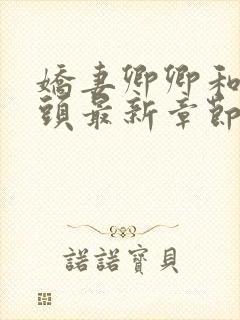 嬌妻卿卿和
頭最新章節
諾諾寶貝